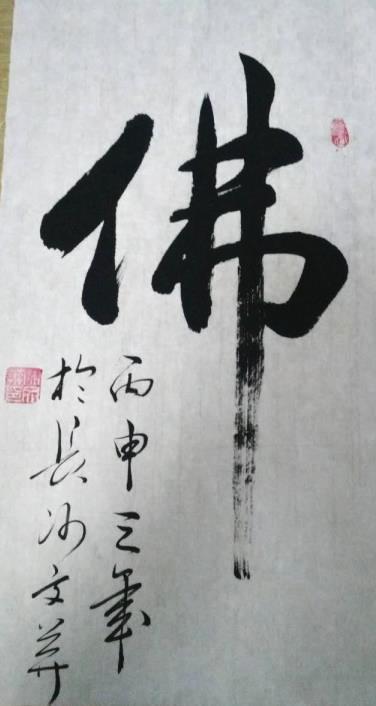 佛
丙申三年
於長沙文英